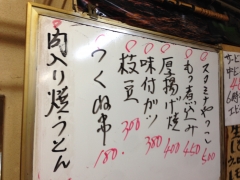 スタミナやっこ 500
もつ煮込み 450
厚揚げ焼 400
味付ガツ 380
枝豆 300
つくね串 180.
肉入り焼うどん